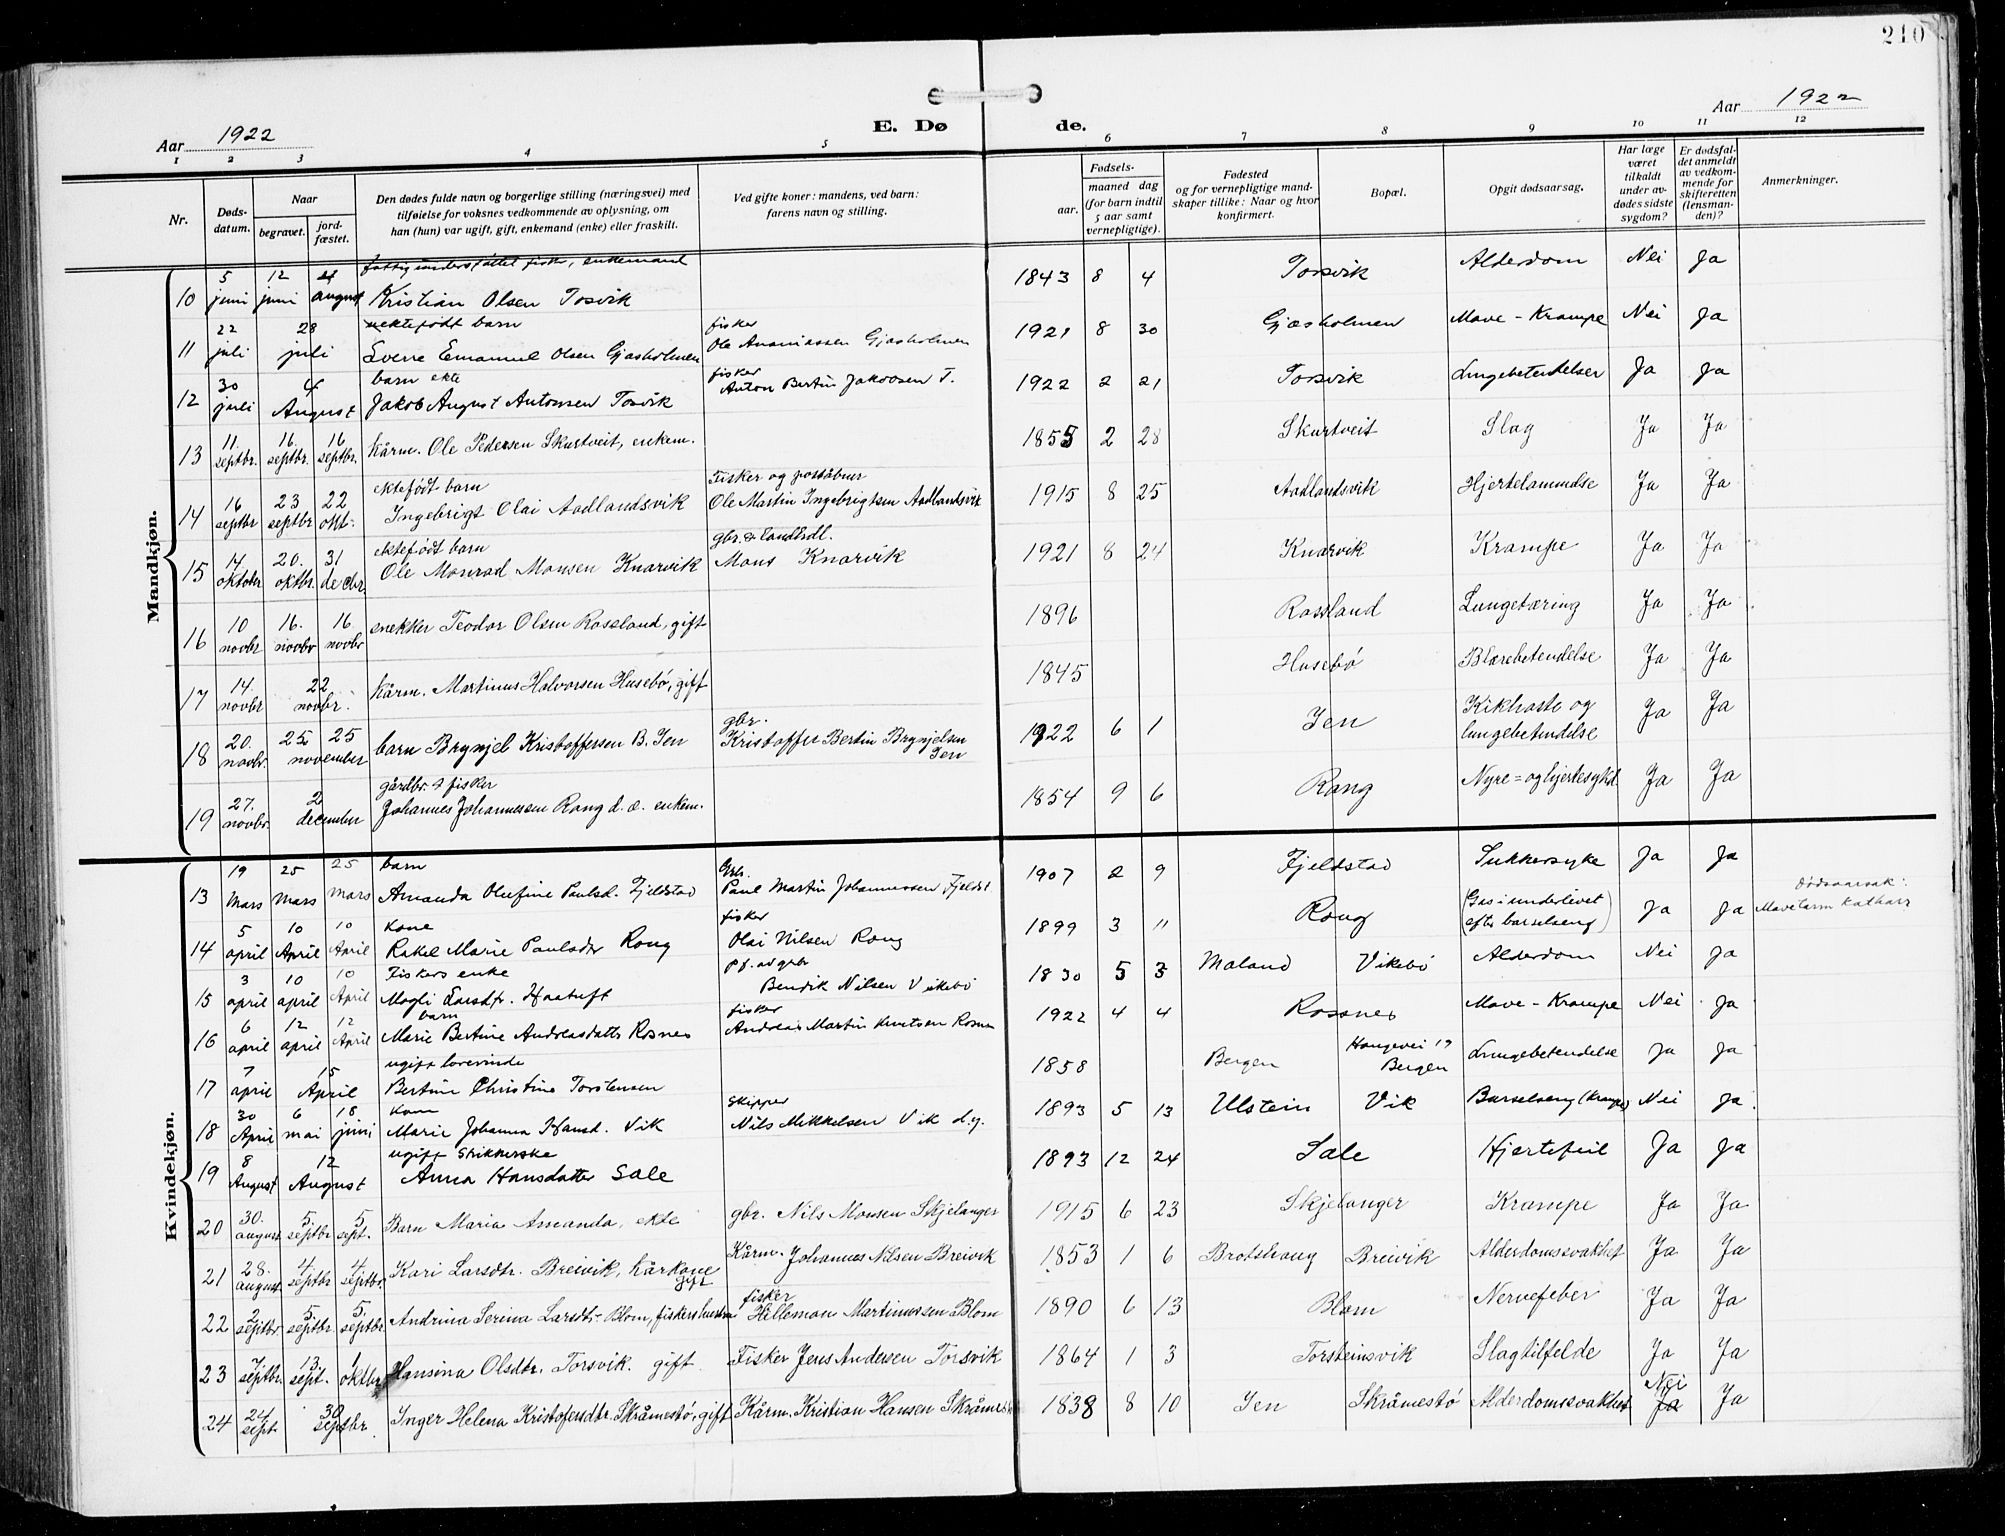 210
Aar 1922
E. Døde.
Aar 1922
1 2 3 4 5 6 7 8 9 10 11 12
Nr.
Døds-datum.
Naar
begravet.
jord-fæstet.
Den dødes fulde navn og borgerlige stilling (næringsvei) med
tilføielse for voksnes vedkommende av oplysning, om
han (hun) var ugift, gift, enkemand (enke) eller fraskilt.
Ved gifte koner: mandens, ved barn:
farens navn og stilling.
Fødsels-
aar.
maaned dag
(for barn indtil
5 aar samt
vernepligtige).
Fødested
og for vernepligtige mand-
skaper tillike: Naar og hvor
konfirmert.
Bopæl.
Opgit dødsaarsag.
Har læge
været
tilkaldt
under av-
dødes sidste
sygdom?
Er dødsfal-
det anmeldt
av vedkom-
mende for
skifteretten
(lensman-
den)?
Anmerkninger.
Mandkjøn.
10 5 juni 12 juni 4 august fattigunderstøttet fisker, enkemand Kristian Olsen Tosvik 1843 8 4 Torsvik Alderdom Nei Ja
11 22 juli 28 juli ektefødt barn Sverre Emanuel Olsen Gjæsholmen fisker Ole Ananiassen Gjæsholmen 1921 8 30 Gjæsholmen Mave-Krampe Nei Ja
12 30 juli 4 August barn ekte Jakob August Antonsen Tosvik fisker Anton Bertin Jakobsen T. 1922 2 21 Torsvik Lungebetendelser Ja Ja
13 11. septbr. 16. septbr. 16 septbr. Kårm. Ole Pedersen Skurtveit, enkem. 1855 2 28 Skurtveit Slag Ja Ja
14 16 septbr 23 septbr 22 okt. ektefødt barn Ingebrigt Olai Aadlandsvik Fisker og poståbner Ole Martin Ingebrigtsen Aadlandsvik 1915 8 25 Aadlandsvik Hjertelammelse Ja Ja
15 14 oktobr 20. oktbr. 31 decbr. ektefødt barn Ole Monrad Monsen Knarvik gbr. & landhdl. Mons Knarvik 1921 8 24 Knarvik Krampe Ja Ja
16 10 novbr 16. novbr 16 novbr snekker Teodor Olsen Rossland, gift 1896 Rossland Lungetæring Ja Ja
17 14. novbr 22 novbr. Kårm. Martinus Halvorsen Husebø, gift 1845 Husebø Blærebetendelse Ja Ja
18 20. novbr. 25 25 november barn Brynjel Kristoffersen B. Jen gbr. Kristoffer Bertin Brynjelsen Jen 1922 6 1 Jen Kikhoste og lungebetendelse Ja Ja
19 27. novbr. 2 december gårdbr. & fisker Johannes Johannessen Rong d. æ. enkem. 1854 9 6 Rong Nyre= og hjertesykd. Ja Ja
Kvindekjøn.
13 19 Mars 25 Mars 25 Mars barn Amanda Olufine Paulsd. Fjeldstad Gbr. Paul Martin Johannessen Fjeldst 1907 2 9 Fjeldstad Sukkersyke Ja Ja
14 5 april 10 April 10 April Kone Rakel Marie Paulsdtr Rong fisker Olai Nilsen Rong 1899 3 11 Rong (Gas i underlivet efter barselseng) Ja Ja Dødsaarsak: Mavetarm katharr
15 3 april 10 april 10 April Fiskers enke Magli Larsdtr. Haatuft Bendik Nilsen Vikebø 1830 5 3 Maland Vikebø Alderdom Nei Ja
16 6 april 12 april 12 April barn Marie Bertine Andreasdattr Rosnes fisker Andreas Martin Knutsen Rosnes 1922 4 4 Rossnes Mave-Krampe Nei Ja
17 7 april 15 April ugift lærerinde Bertine Christine Torstensen 1858 Bergen Haugevei 19 Bergen Lungebetendelse Ja Ja
18 30 April 6 mai 18 juni Kone Marie Johanna Hansd. Vik Skipper Nils Mikkelsen Vik d.y. 1893 5 13 Ulstein Vik Barselseng (Krampe) Nei Ja
19 8 August 12 August ugift Strikkerske Anna Hansdatter Sale 1893 12 24 Sale Hjertefeil Ja Ja
20 30. august 5 septbr 5 sept. Barn Maria Amanda, ekte gbr. Nils Monsen Skjelanger 1915 6 23 Skjelanger Krampe Ja Ja
21 28. august 4 septbr 4 septbr. Kari Larsdtr. Breivik, kårkone gift Kårm. Johannes Nilsen Breivik 1853 1 6 Brotshaug Breivik Alderdomssvakhet Ja Ja
22 2 septbr. 5 septbr 5 septbr. Andrina Serina Larsdtr. Blom, fiskers hustru fisker Hilleman Martinussen Blom 1890 6 13 Blom Nervefeber Ja Ja
23 7 septbr. 13. sept. 1 oktbr Hansina Olsdtr. Torsvik. gift. Fisker Jens Andersen Torsvik 1864 1 3 Torsteinsvik Slagtilfelde Ja Ja
24 24 sept. 30 septbr. Inger Helena Kristofersdtr. Skråmestø, gift Kårm. Kristian Hansen Skråmestø 1838 8 10 Jen Skråmestø Alderdomssvakhet Nei Ja Ja